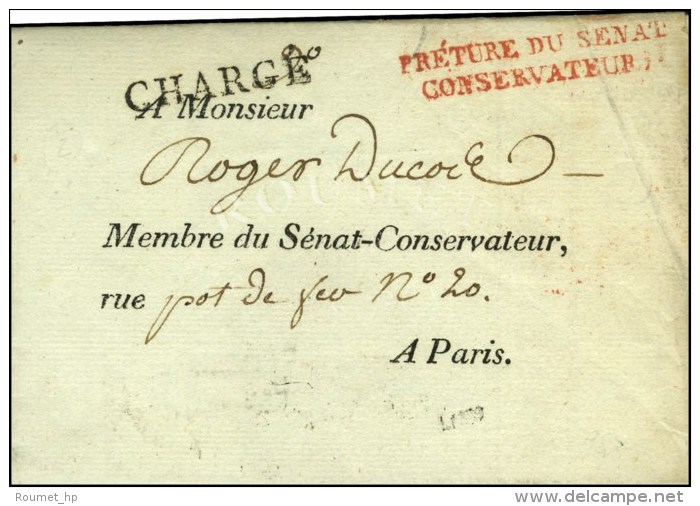 CHARGÉ
PRÉTURE DU SENAT
CONSERVATEUR,
A Monsieur
Roger Ducos
Membre du Sénat-Conservateur,
rue pot de fer Nº 20.
A Paris.
Roumet_hp
www.delcampe.net